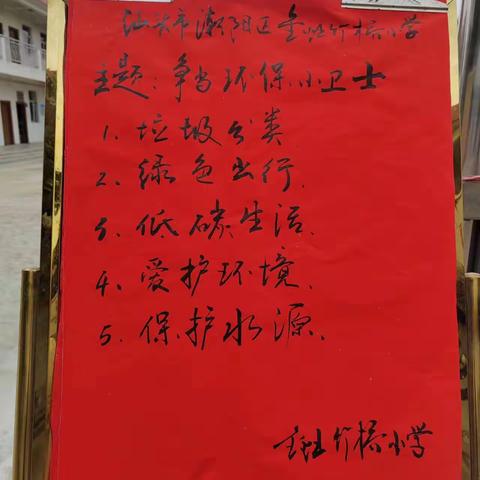 汕头市潮阳区金灶竹桥小学
主题：争当环保小卫士
1. 垃圾分类
2. 绿色出行.
3. 低碳生活.
4. 爱护环境.
5. 保护水源.
金灶竹桥小学